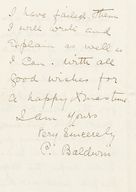 I have failed them
I will write and
explain as well as
I can. With all
good wishes for
a happy Xmastime
I am yours
Very Sincerely
C. Baldwin